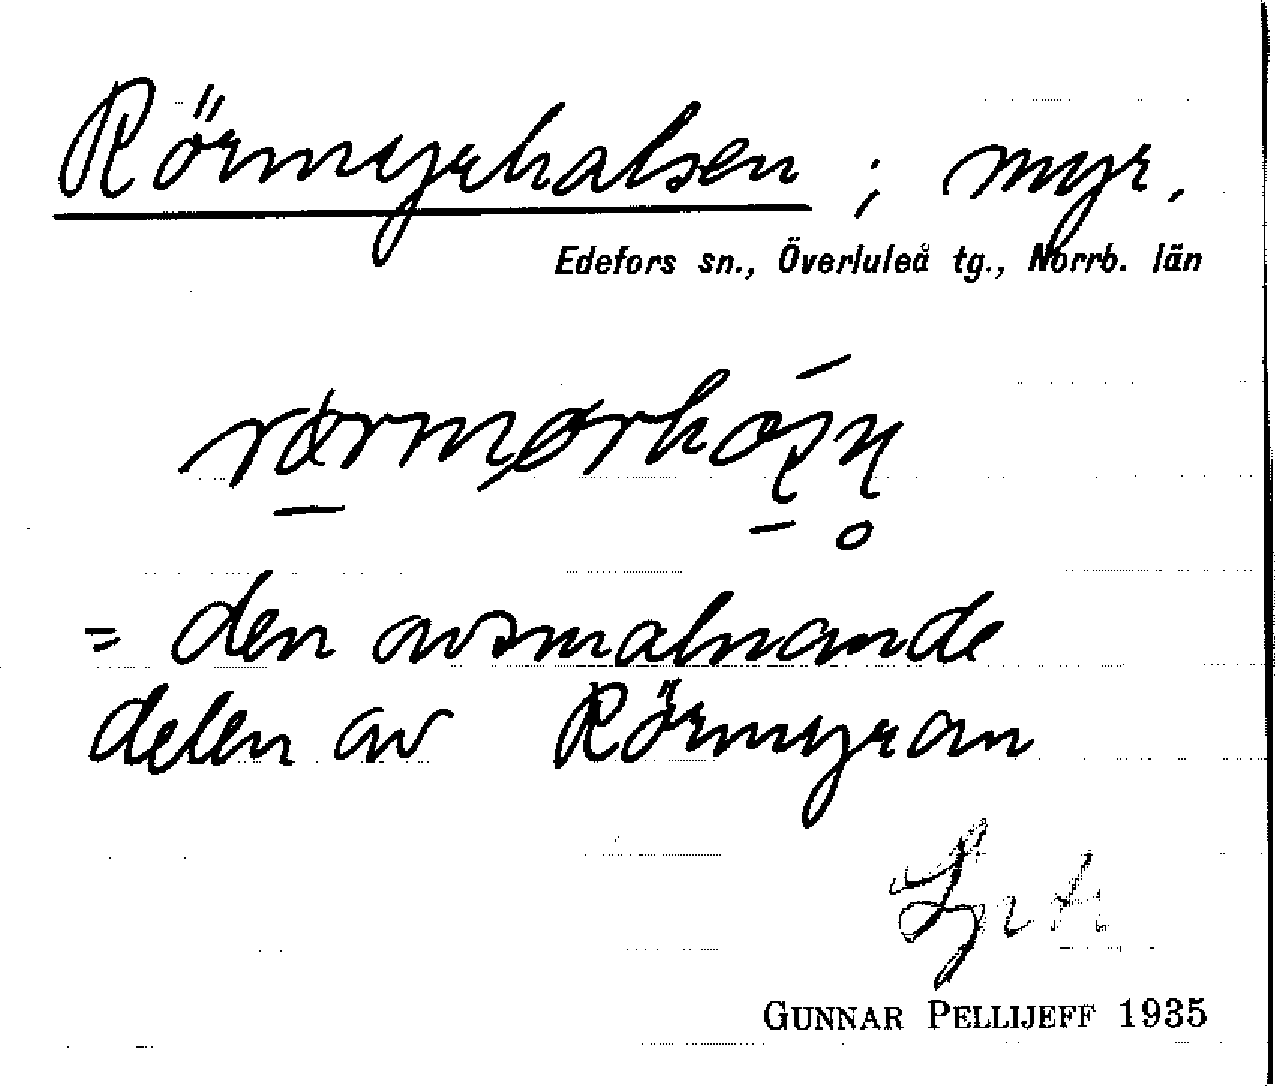 Rörmyrhalsen ; myr.
Edefors sn., Överluleå tg., Norrb. län
= den avsmalnande
delen av Rörmyran
GUNNAR PELLIJEFF 1935